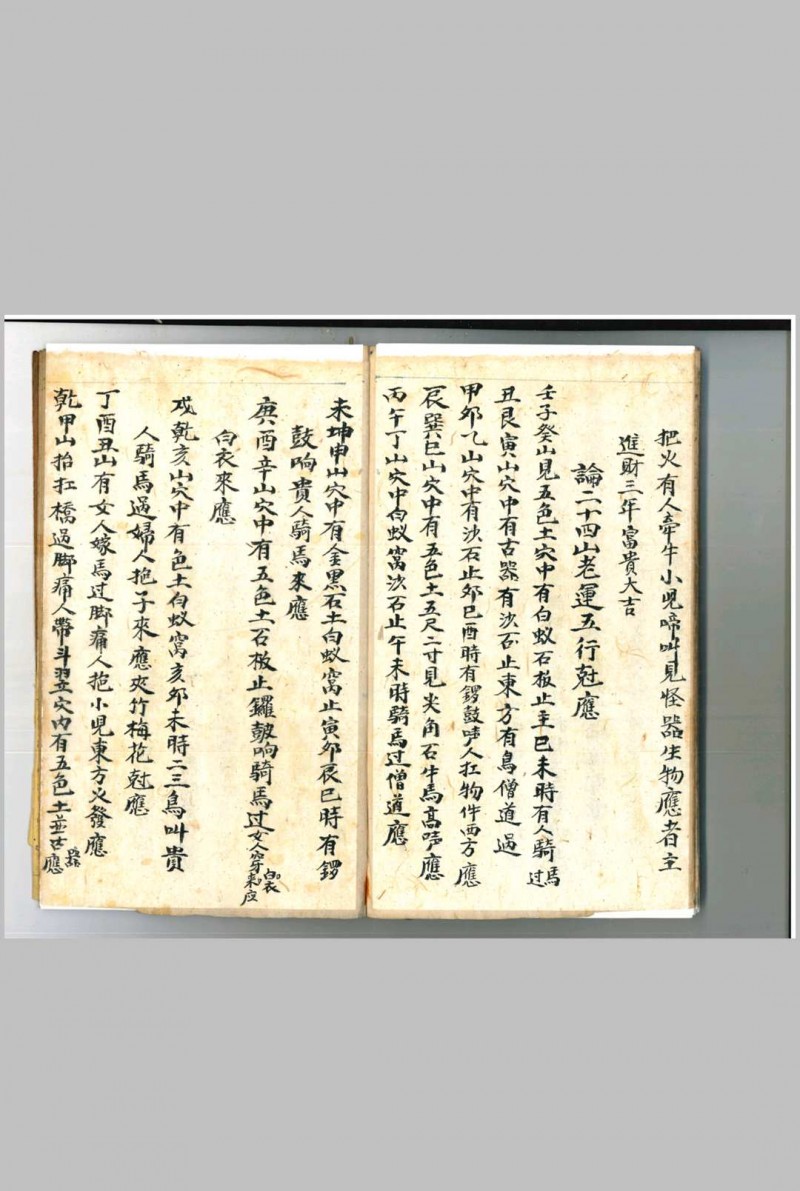 把火有人牽牛小児啼叫見怪器生物應者主
進財三年富貴大吉
論二十四山老運五行尅應
壬子癸山見五色土穴中有白蚁石板止主巳未時有人騎馬过
丑艮寅山穴中有古器有沙石止東方有鳥僧道過
甲夘乙山穴中有沙石止夘巳酉時有鑼鼓声人扛物件西方應
辰巽巳山穴中有五色土五尺二寸見尖角石牛馬高声應
丙午丁山穴中白蚁窩沙石止午未時騎馬过僧道應
未坤申山穴中有金黒石土白蚁窩止寅夘辰巳時有鑼
鼓响貴人騎馬來應
庚酉辛山穴中有五色土石板止鑼皷响騎馬过女人穿白衣來应
白衣來應
戍乾亥山穴中有色土白蚁窩亥夘未時二三鳥叫貴
人騎馬過婦人抱子來應夾竹梅花尅應
丁酉丑山有女人嫁馬过脚痛人抱小児東方火發應
乾甲山抬扛橋過脚痛人帶斗翌穴内有五色土並古器應